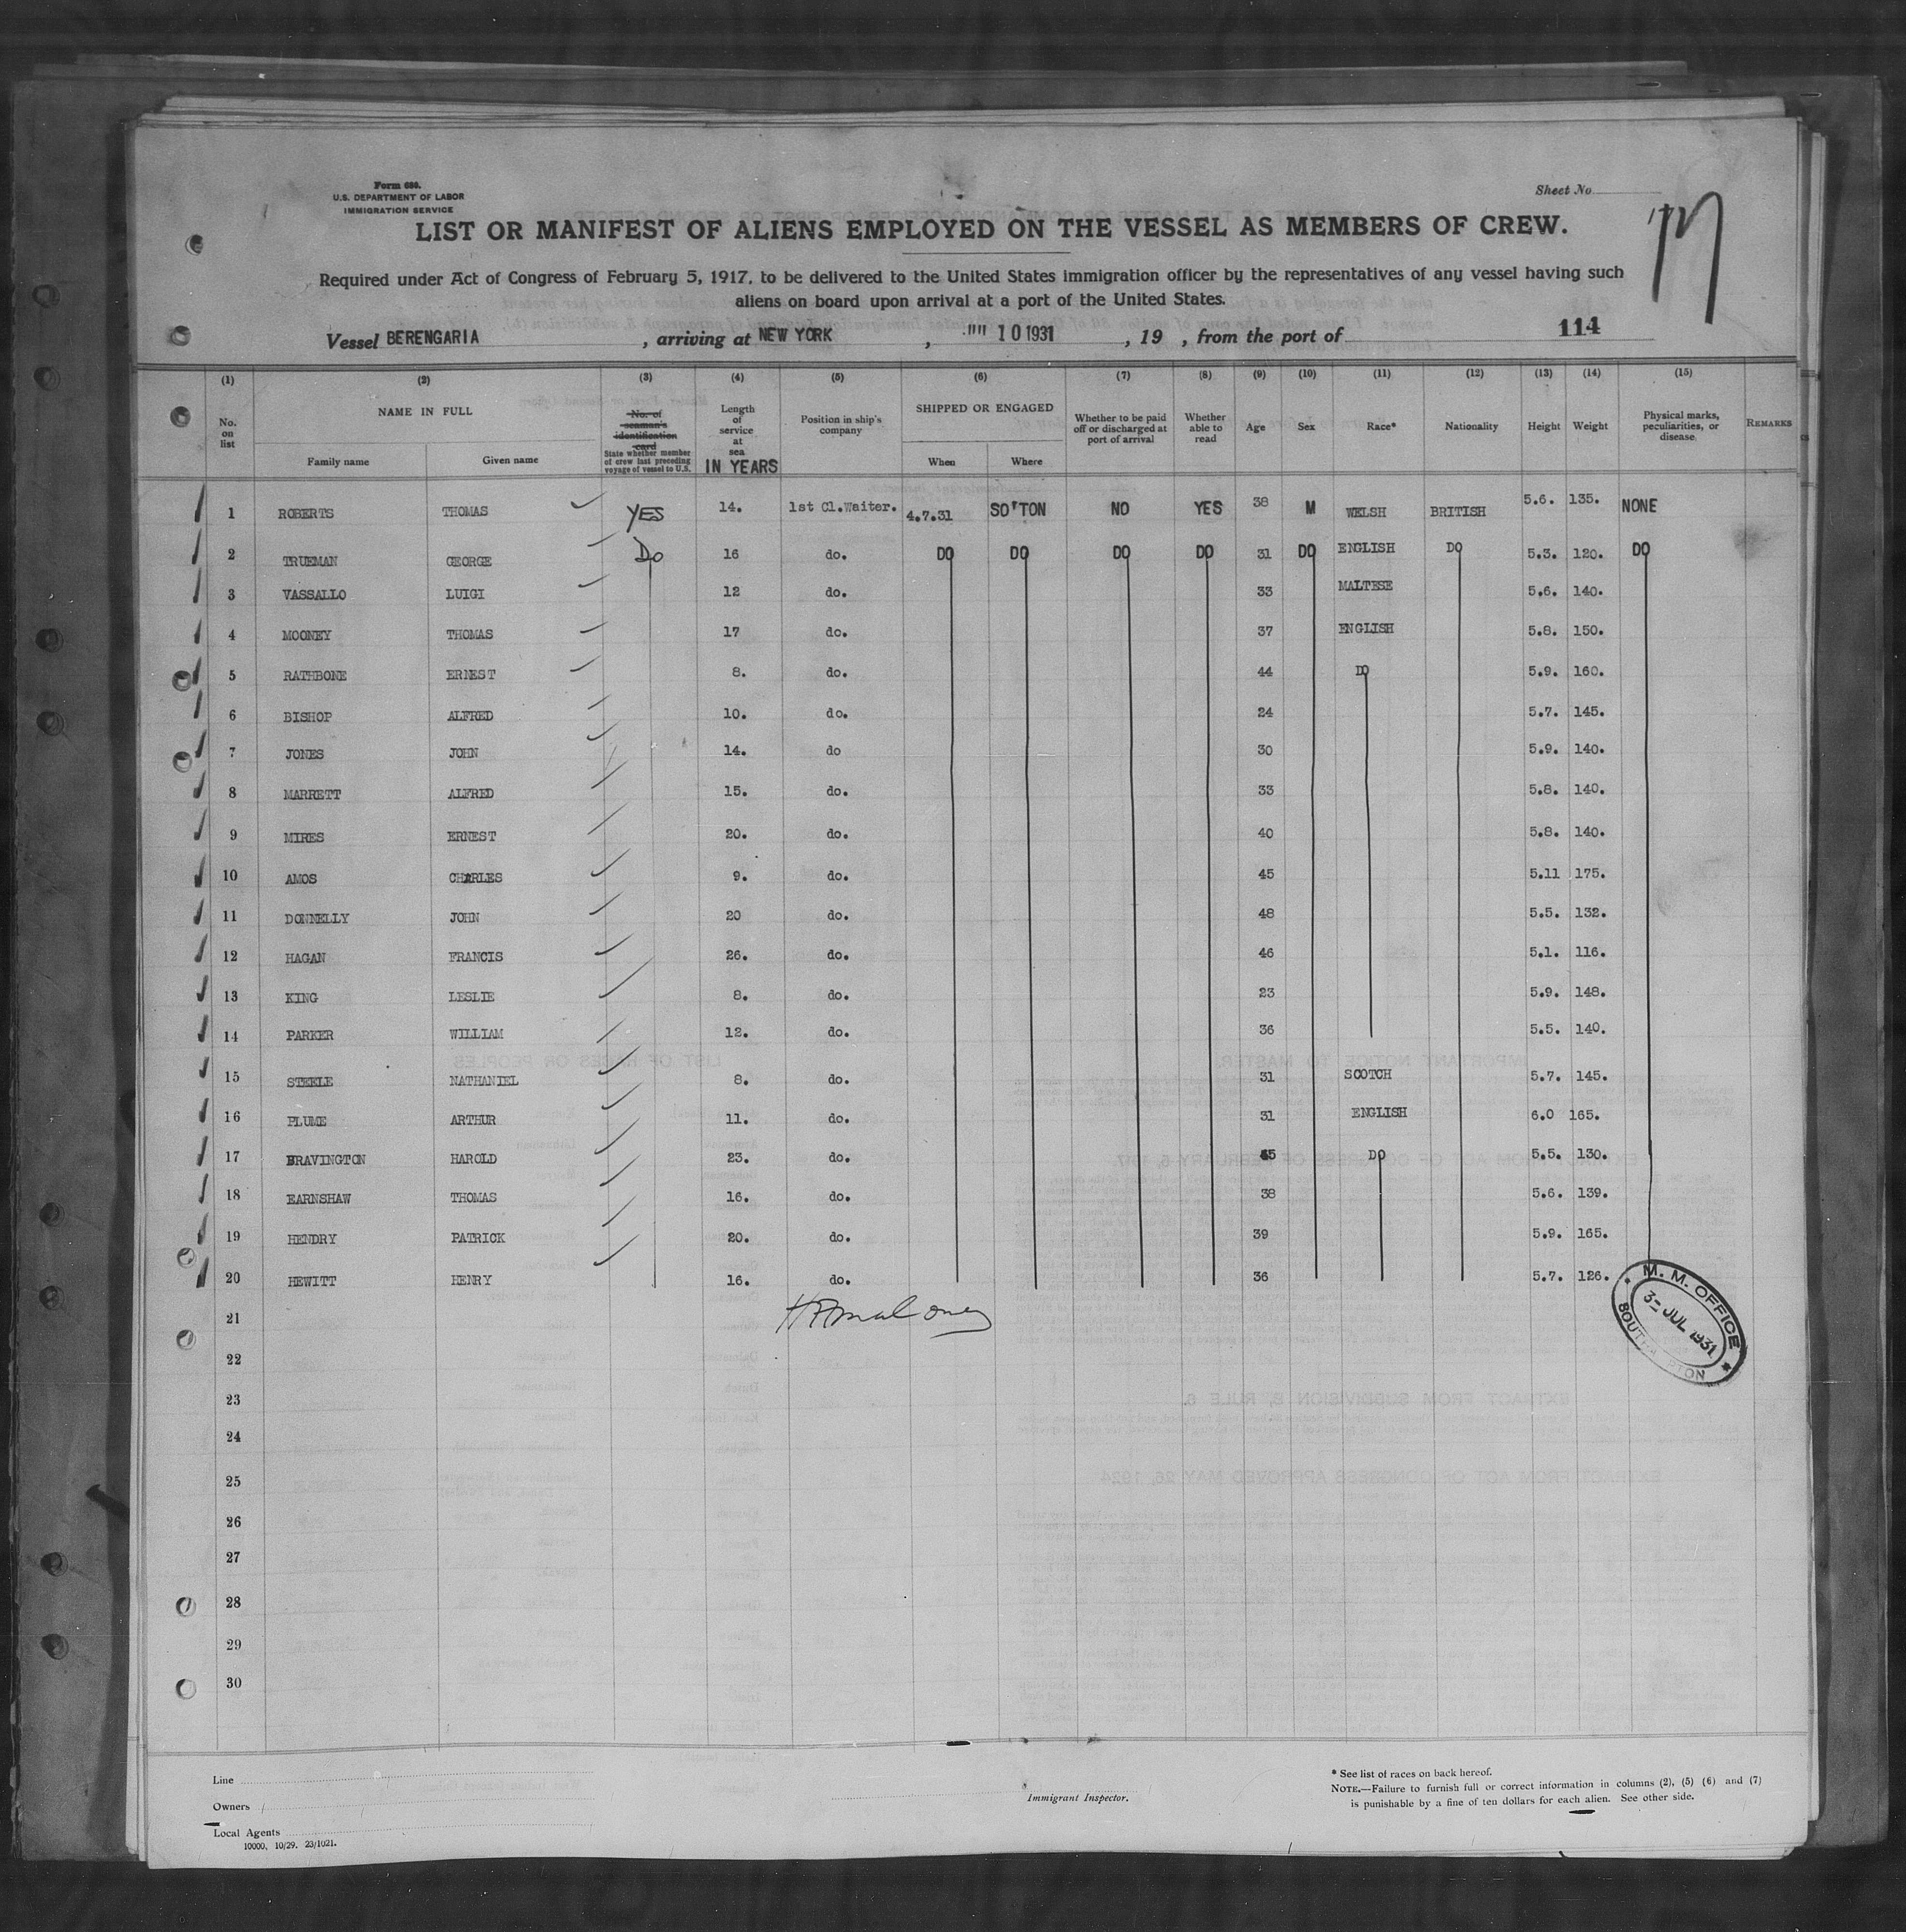 Form 680.
U.S. DEPARTMENT OF LABOR
IMMIGRATION SERVICE
Sheet No
LIST OR MANIFEST OF ALIENS EMPLOYED ON THE VESSEL AS MEMBERS OF CREW.
Required under Act of Congress of February 5, 1917, to be delivered to the United States immigration officer by the representatives of any vessel having such
aliens on board upon arrival at a port of the United States.
Vessel BERENGARIA , arriving at NEW YORK , 10 1931 , 19 , from the port of 114
(1) (2) (3) (4) (5) (6) (7) (8) (9) (10) (11) (12) (13) (14) (15)
No. on list
NAME IN FULL
Family name Given name
No. of seaman's identification card
State whether member of crew last preceding voyage of vessel to U.S.
Length of service at sea
IN YEARS
Position in ship's company
SHIPPED OR ENGAGED
When Where
Whether to be paid off or discharged at port of arrival
Whether able to read
Age Sex Race* Nationality Height Weight
Physical marks, peculiarities, or disease
REMARKS
1 ROBERTS THOMAS YES 14. 1st Cl.Waiter. 4.7.31 SO'TON NO YES 38 M WELSH BRITISH 5.6. 135. NONE
2 TRUEMAN GEORGE Do 16 do. DO DO DO DO 31 DO ENGLISH DO 5.3. 120. DO
3 VASSALLO LUIGI 12 do. 33 MALTESE 5.6. 140.
4 MOONEY THOMAS 17 do. 37 ENGLISH 5.8. 150.
5 RATHBONE ERNEST 8. do. 44 DO 5.9. 160.
6 BISHOP ALFRED 10. do. 24 5.7. 145.
7 JONES JOHN 14. do 30 5.9. 140.
8 MARRETT ALFRED 15. do. 33 5.8. 140.
9 MIRES ERNEST 20. do. 40 5.8. 140.
10 AMOS CHARLES 9. do. 45 5.11 175.
11 DONNELLY JOHN 20 do. 48 5.5. 132.
12 HAGAN FRANCIS 26. do. 46 5.1. 116.
13 KING LESLIE 8. do. 23 5.9. 148.
14 PARKER WILLIAM 12. do. 36 5.5. 140.
15 STEELE NATHANIEL 8. do. 31 SCOTCH 5.7. 145.
16 PLUME ARTHUR 11. do. 31 ENGLISH 6.0 165.
17 BRAVINGTON HAROLD 23. do. 45 DO 5.5. 130.
18 EARNSHAW THOMAS 16. do. 38 5.6. 139.
19 HENDRY PATRICK 20. do. 39 5.9. 165.
20 HEWITT HENRY 16. do. 36 5.7. 126.
21
22
23
24
25
26
27
28
29
30
M. M. OFFICE
3- JUL 1931
Line
Owners
Local Agents
10000, 10/29. 23/1021.
Immigrant Inspector.
* See list of races on back hereof.
NOTE.—Failure to furnish full or correct information in columns (2), (5) (6) and (7)
is punishable by a fine of ten dollars for each alien. See other side.